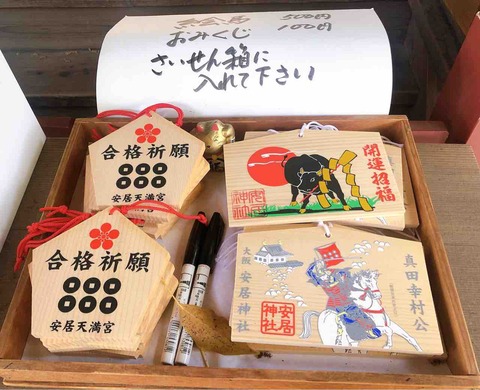 絵馬 500円
おみくじ 100円
さいせん箱に
入れて下さい
合格祈願
安居天満宮
開運招福
安居神社
合格祈願
安居天満宮
大阪 安居神社
安居神社
真田幸村公